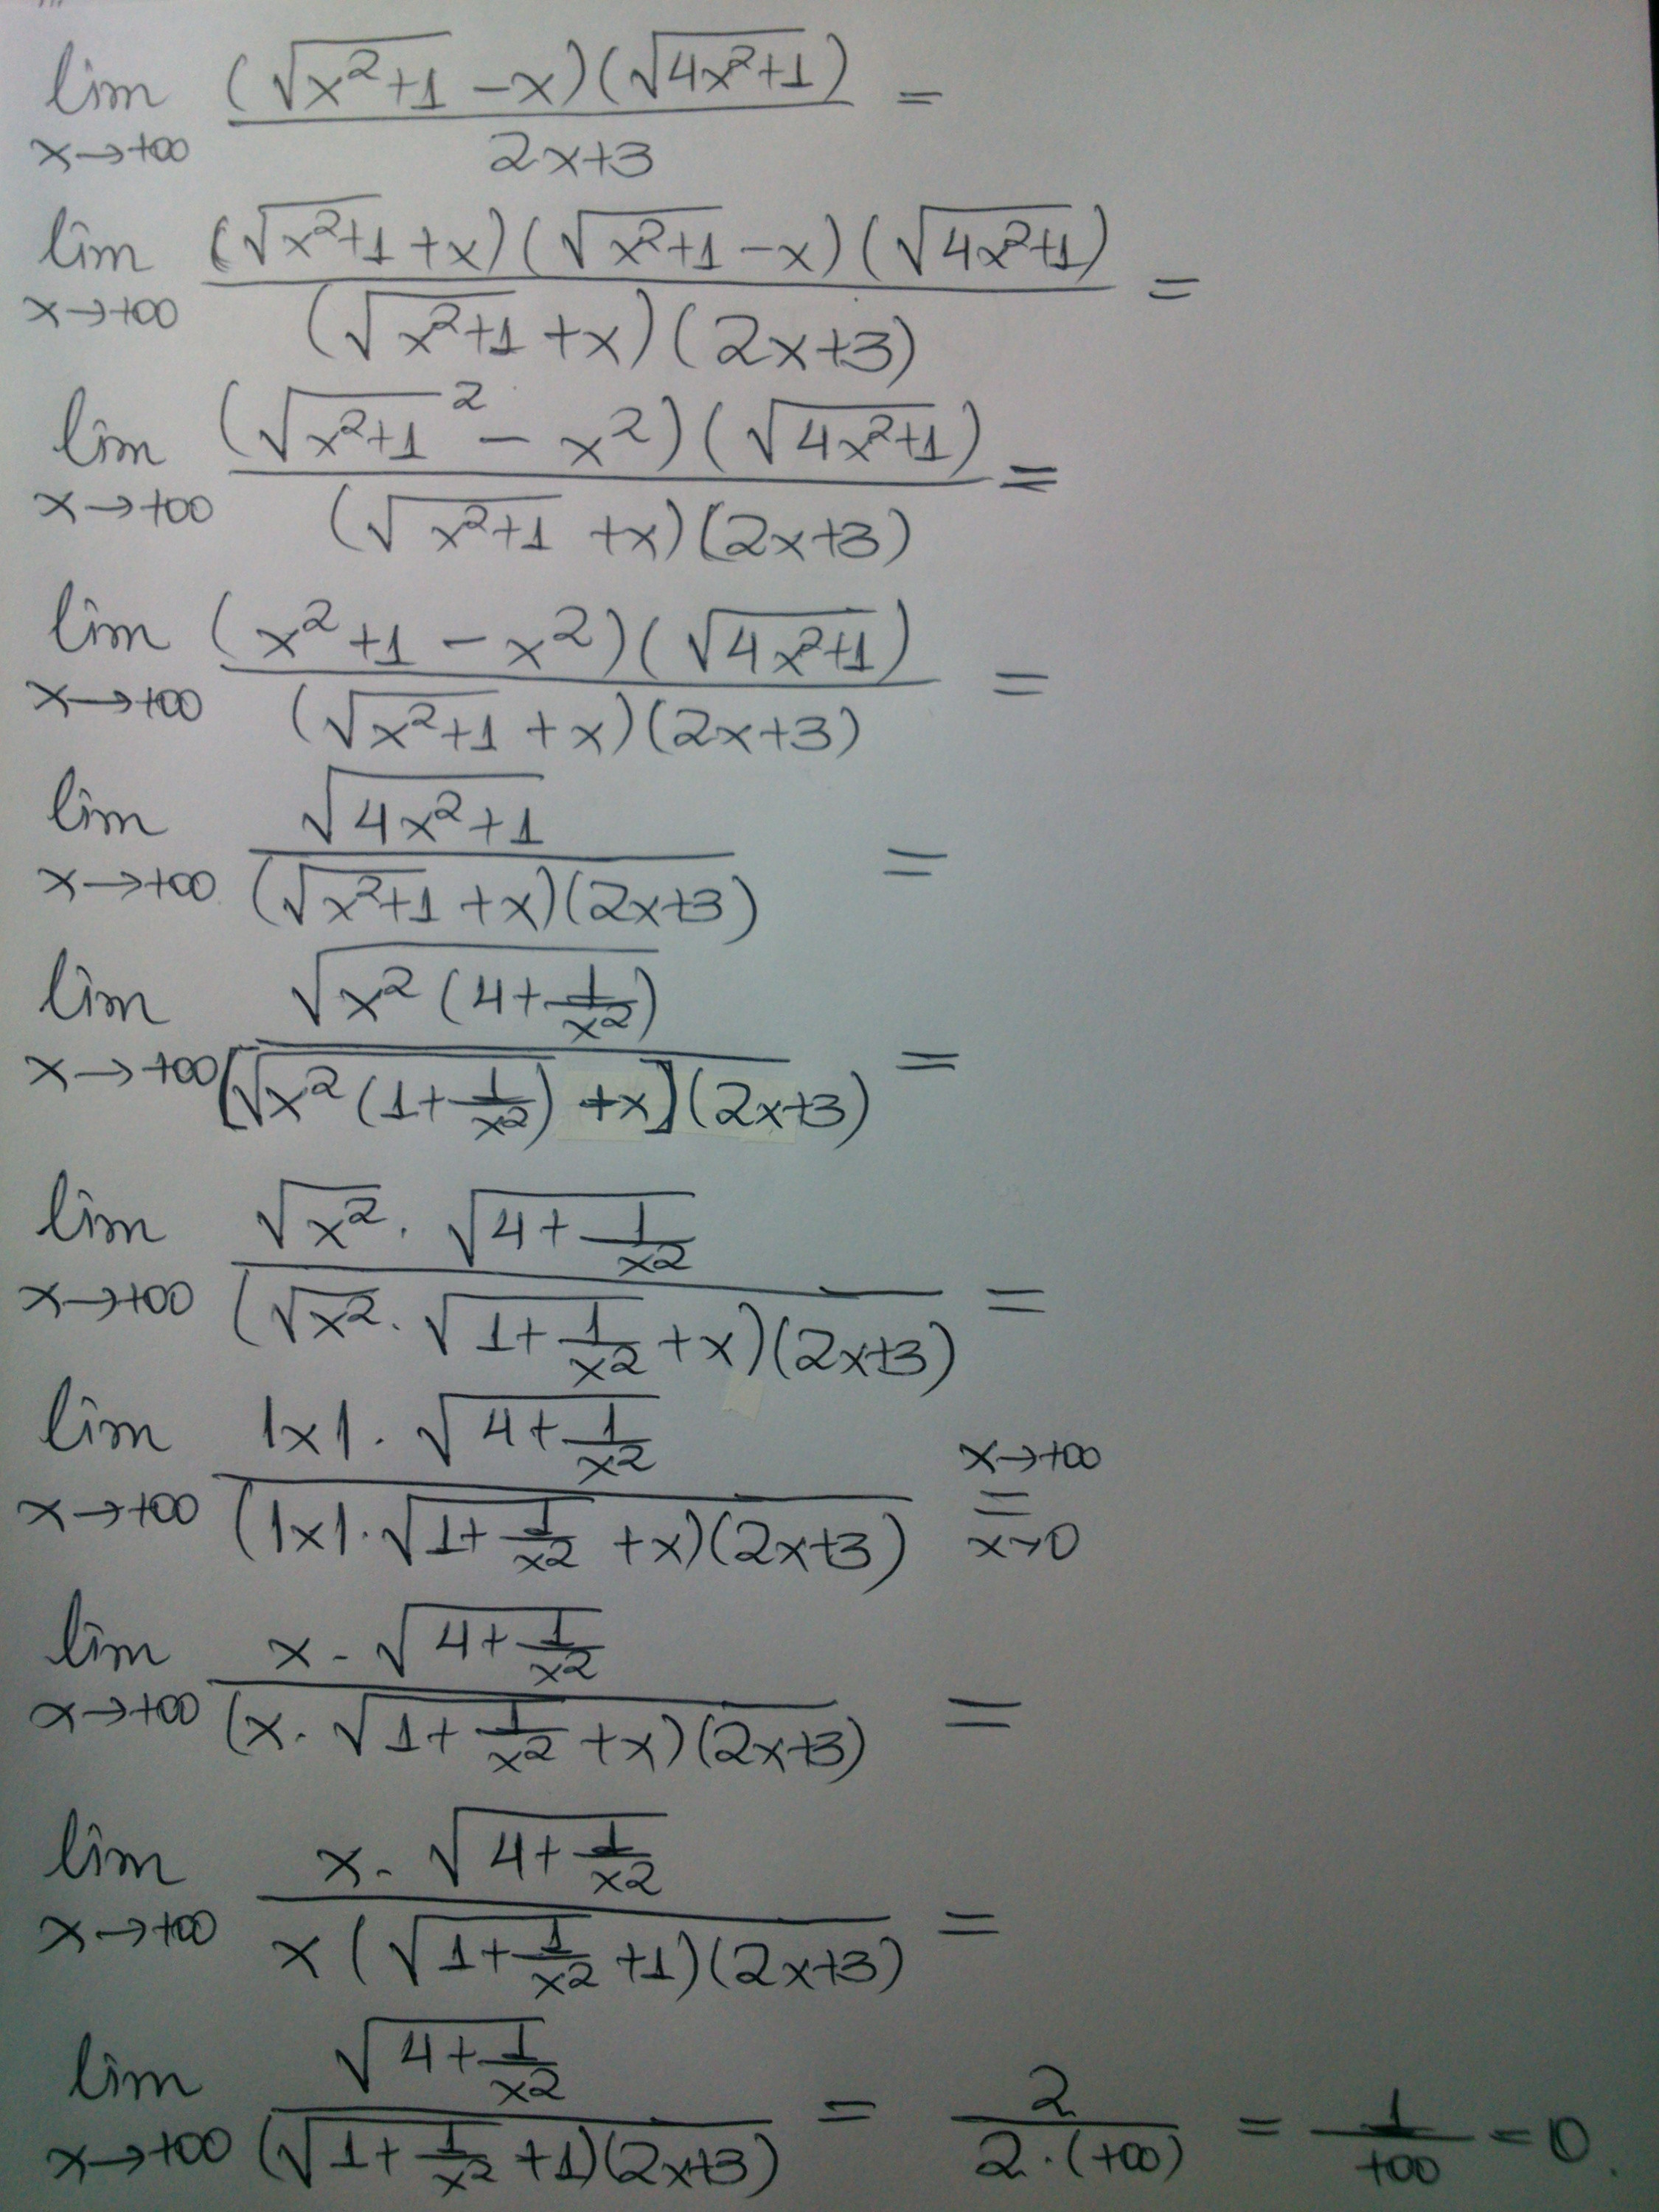 lim x→+∞ (√(x²+1) - x)(√(4x²+1)) / (2x+3) =
lim x→+∞ (√(x²+1) + x)(√(x²+1) - x)(√(4x²+1)) / (√(x²+1) + x)(2x+3) =
lim x→+∞ (√(x²+1)² - x²)(√(4x²+1)) / (√(x²+1) + x)(2x+3) =
lim x→+∞ (x²+1 - x²)(√(4x²+1)) / (√(x²+1) + x)(2x+3) =
lim x→+∞ √(4x²+1) / (√(x²+1) + x)(2x+3) =
lim x→+∞ √(x²(4+1/x²)) / [√(x²(1+1/x²)) + x](2x+3) =
lim x→+∞ √x² · √(4+1/x²) / (√x² · √(1+1/x²) + x)(2x+3) =
lim x→+∞ |x| · √(4+1/x²) / (|x| · √(1+1/x²) + x)(2x+3) = x→+∞ x>0
lim x→+∞ x · √(4+1/x²) / (x · √(1+1/x²) + x)(2x+3) =
lim x→+∞ x · √(4+1/x²) / x(√(1+1/x²) + 1)(2x+3) =
lim x→+∞ √(4+1/x²) / (√(1+1/x²) + 1)(2x+3) = 2 / 2·(+∞) = 1 / +∞ = 0.